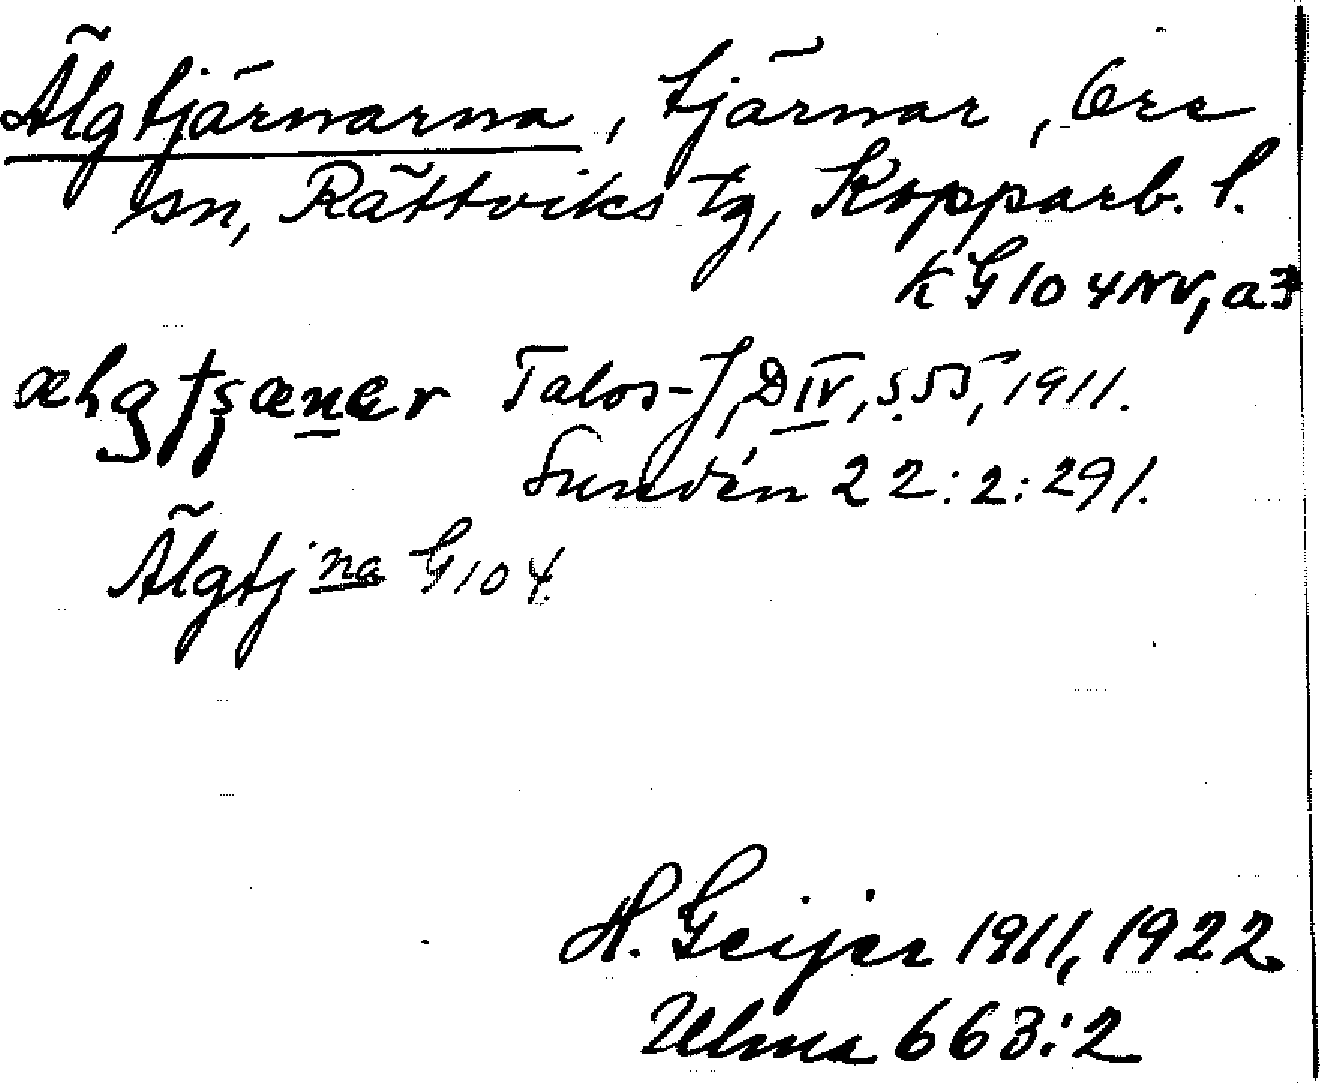 Älgtjärnarna, tjärnar, Ore
sn, Rättviks tg, Kopparb. l.
KG 104 NV, a3
Talos-J, D IV, s. 55, 1911.
Sundén 22:2:291.
Älgtj na G 104
H. Geijer 1911, 1922
Ulma 663:2